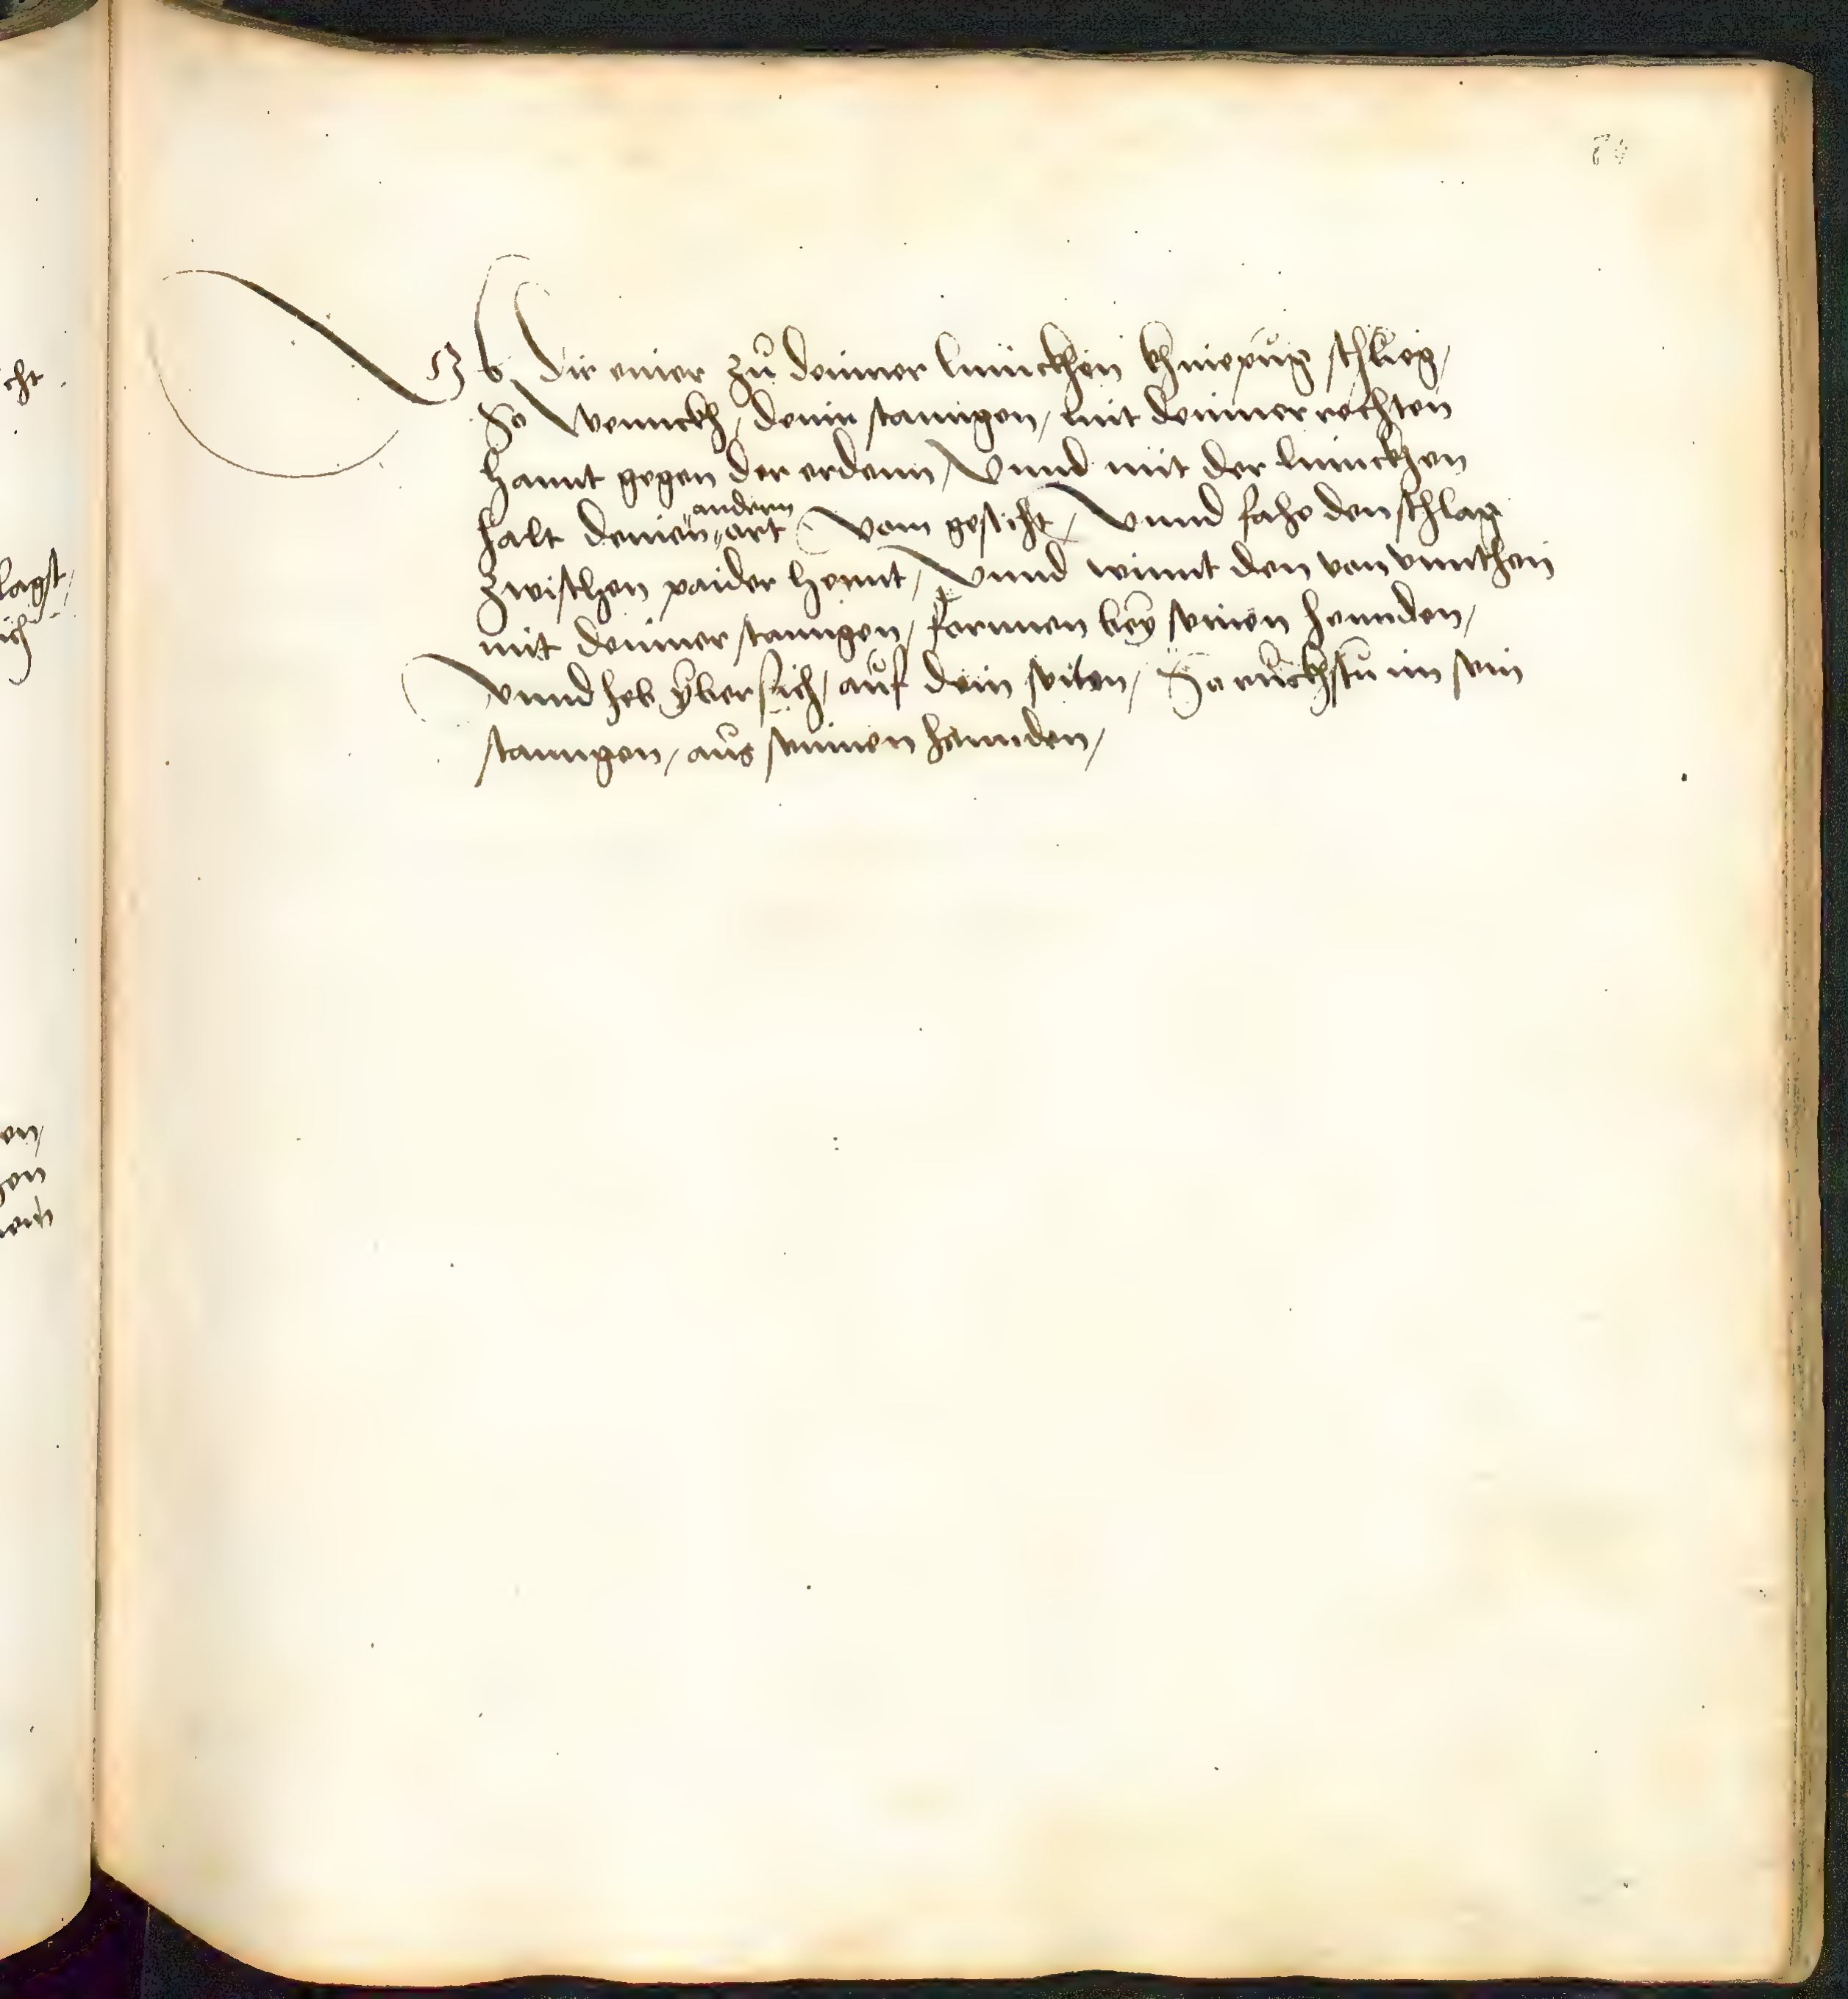 Ob dir einer zu deinner linnckhen khniepug schlieg,
So wennckh, deinn stanngen, mit deinner rechten
hannt gegen der erdenn, Vnnd mit der linnckhen
halt deinen andern ort vom gesicht, Vnnd fahe den schlag
zwischen paider hennt, Vnnd winnt den von vnnthen
mit deinner stanngen, fornnen bey seinen hennden,
Vnnd heb ybersich, auf dein seiten, So ruckhstu im sein
stanngen, aus seinnen hennden,